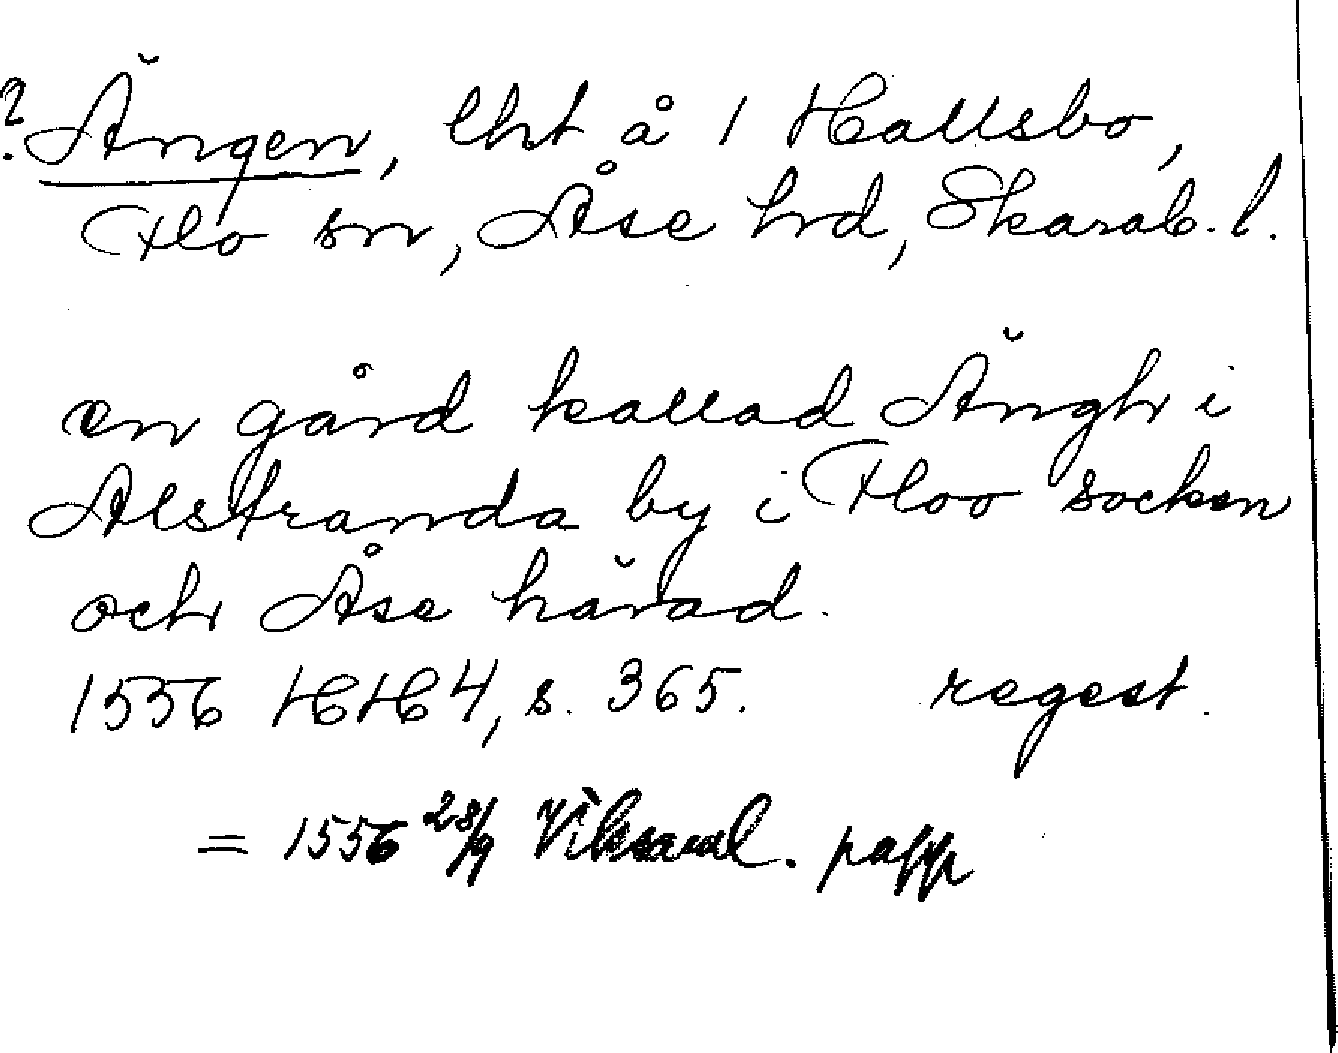 ? Ängen, lht å 1 Hallsbo,
Flo sn, Åse hd, Skarab. l.
en gård kallad Ängh i
Alstranda by i Floo socken
och Åse härad.
1556 HH 4, s. 365. regest.
= 1556 28/9 Viksaml. papp